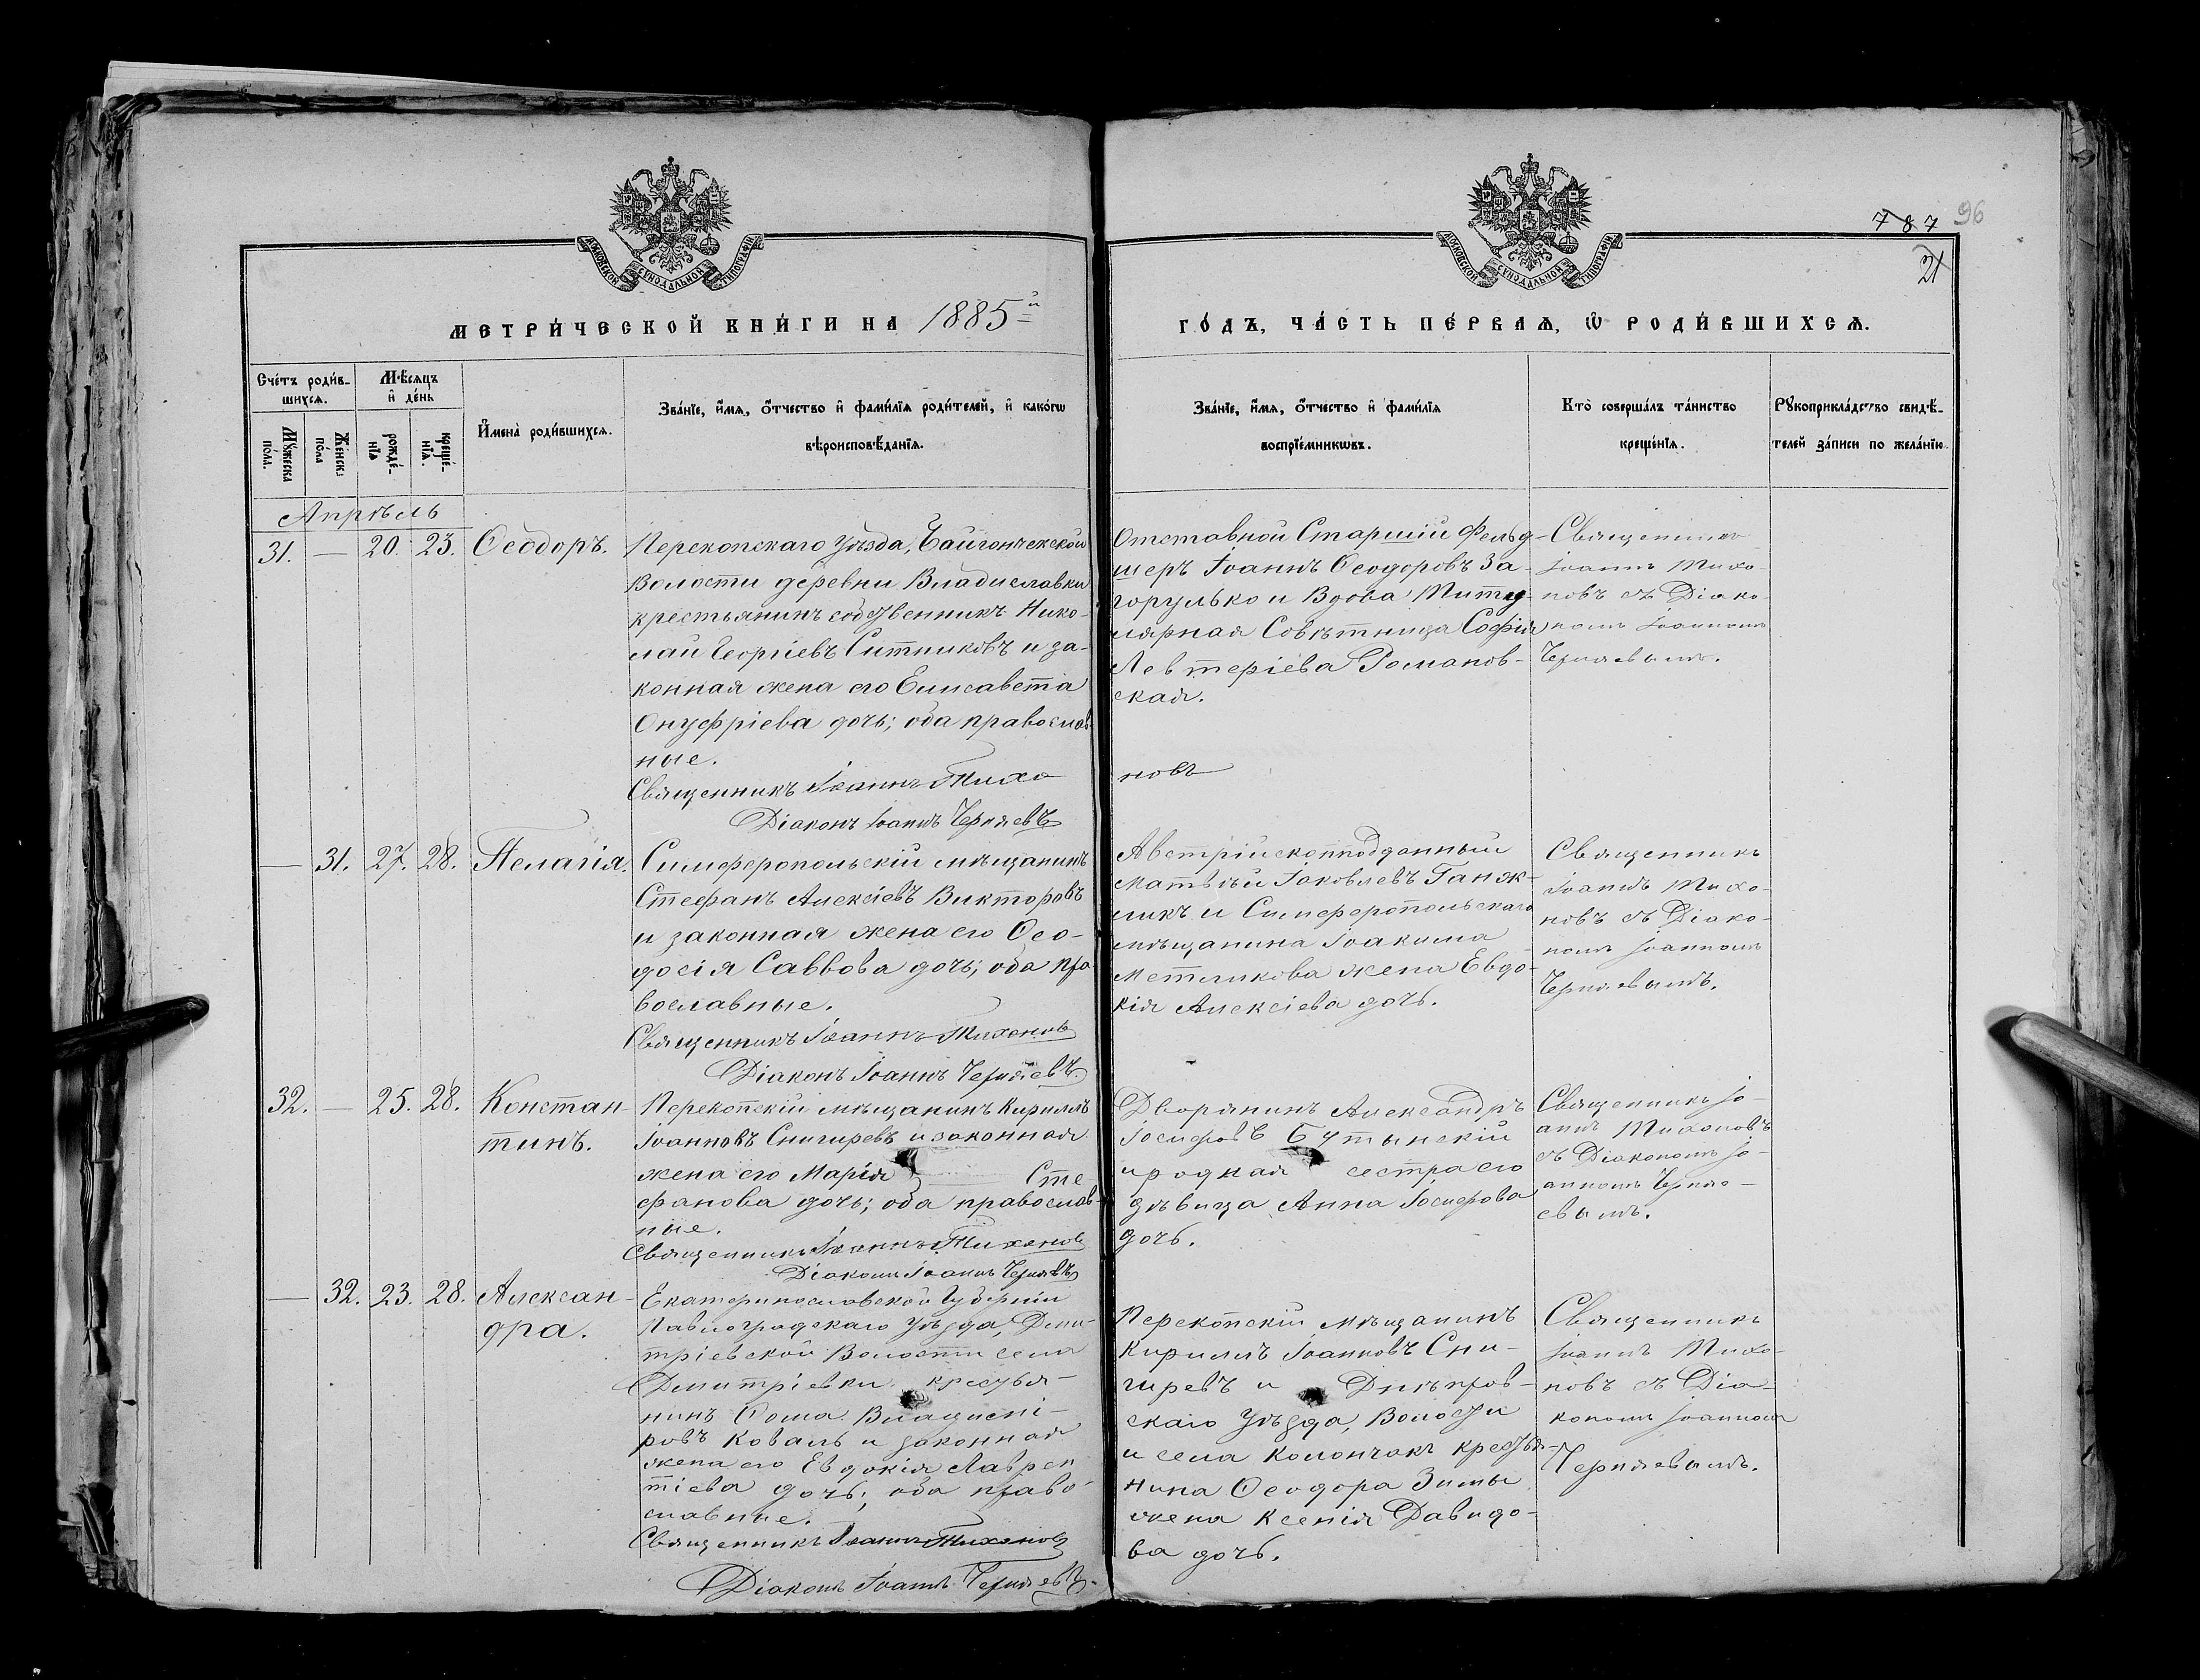 787 96
21
МОСКОВСКОЙ СѴНОДАЛЬНОЙ ТИПОГРАФІИ
МОСКОВСКОЙ СѴНОДАЛЬНОЙ ТИПОГРАФІИ
МЕТРИ́ЧЕСКОЙ КНИ́ГИ НА 1885й
ГО́ДЪ, ЧА́СТЬ ПЕ́РВАѦ, Ѡ҆ РОДИ́ВШИХСѦ.
Сче́тъ роди́в-
шихсѧ.
Мѣ́сѧцъ
и҆ де́нь
Мꙋ́жеска
по́ла.
Же́нска
по́ла
рожде́-
нїѧ
креще́-
нїѧ.
И҆мена̀ роди́вшихсѧ.
Зва́нїе, и҆́мѧ, ѻ҆́тчество и҆ фами́лїѧ роди́телей, и҆ како́гѡ
вѣроисповѣ́данїѧ.
Зва́нїе, и҆́мѧ, ѻ҆́тчество и҆ фами́лїѧ
воспрїе́мникѡвъ.
Кто̀ соверша́лъ та́инство
креще́нїѧ.
Рꙋкоприкла́дство свидѣ́-
телей за́писи по жела́нїю.
Апрѣль
31. — 20. 23. Ѳеодоръ.
Перекопскаго Уѣзда, Байгончекской
Волости деревни Владиславки
крестьянинъ собственникъ Нико-
лай Георгіевъ Ситниковъ и за-
конная жена его Елисавета
Онуфріева дочь; оба православ-
ные.
Священникъ Іоаннъ Тихо
новъ
Діаконъ Іоаннъ Черняевъ
Отставной Старшій Фельд-
шеръ Іоаннъ Ѳеодоровъ За-
горулько и Вдова Титу-
лярная Совѣтница Софія
Левтеріева Романов-
ская.
Священник
Іоаннъ Тихо-
новъ съ Діако-
номъ Іоанномъ
Черняевымъ.
— 31. 27. 28. Пелагія.
Симферопольскій мѣщанинъ
Стефанъ Алексіевъ Викторовъ
и законная жена его Ѳео-
досія Саввова дочь; оба пра-
вославные.
Священникъ Іоаннъ Тихоновъ
Діаконъ Іоаннъ Черняевъ.
Австрійскоподданный
Матѳей Іаковлевъ Ганж-
ликъ и Симферопольскаго
мѣщанина Іоакима
Метликова жена Евдо-
кія Алексіева дочь.
Священникъ
Іоаннъ Тихо-
новъ съ Діако-
номъ Іоанномъ
Черняевымъ.
32. — 25. 28. Констан-
тинъ.
Перекопскій мѣщанинъ Кириллъ
Іоанновъ Снигиревъ и законная
жена его Марія Сте
фанова дочь; оба православ-
ные.
Священникъ Іоаннъ Тихоновъ
Діаконъ Іоаннъ Черняевъ
Дворянинъ Александръ
Іосифовъ Бутынскій
и родная сестра его
дѣвица Анна Іосифова
дочь.
Священникъ Іо-
аннъ Тихоновъ
съ Діакономъ Іо-
анномъ Черня-
евымъ.
— 32. 23. 28. Алексан-
дра.
Екатеринославской Губерніи
Павлоградскаго Уѣзда, Дми-
тріевской Волости села
Дмитріевки крестья-
нинъ Ѳома Владимі-
ровъ Коваль и законная
жена его Евдокія Лаврен
тіева дочь; оба право-
славные.
Священникъ Іоаннъ Тихоновъ
Діаконъ Іоаннъ Черняевъ.
Перекопскій мѣщанинъ
Кириллъ Іоанновъ Сни-
гиревъ и Днѣпров-
скаго Уѣзда, Волости
и села Колончакъ крестья-
нина Ѳеодора Зимы
жена Ксенія Давидо-
ва дочь.
Священникъ
Іоаннъ Тихо-
новъ съ Діа-
кономъ Іоанномъ
Черняевымъ.